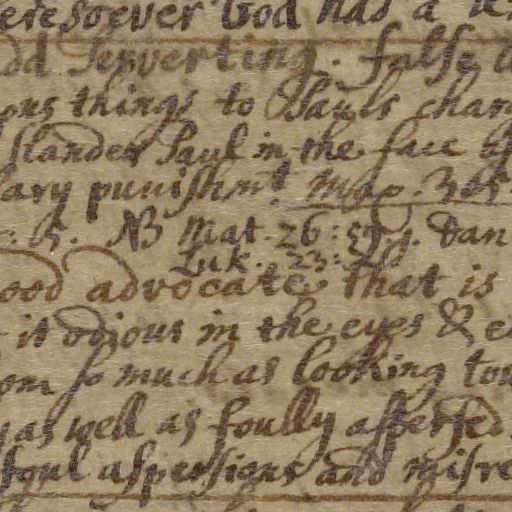 eresoever God has a
perverting. false
ous things to Pauls char
slander Paul in the face of
ary punishmt. Map. 365
: 5. NB Mat 26: 59. Dan
Luk. 23: 2
ood advocate that is
it odious in the eyes & e
om so much as looking tow
as well as foully aspersed
foul aspersions and misre